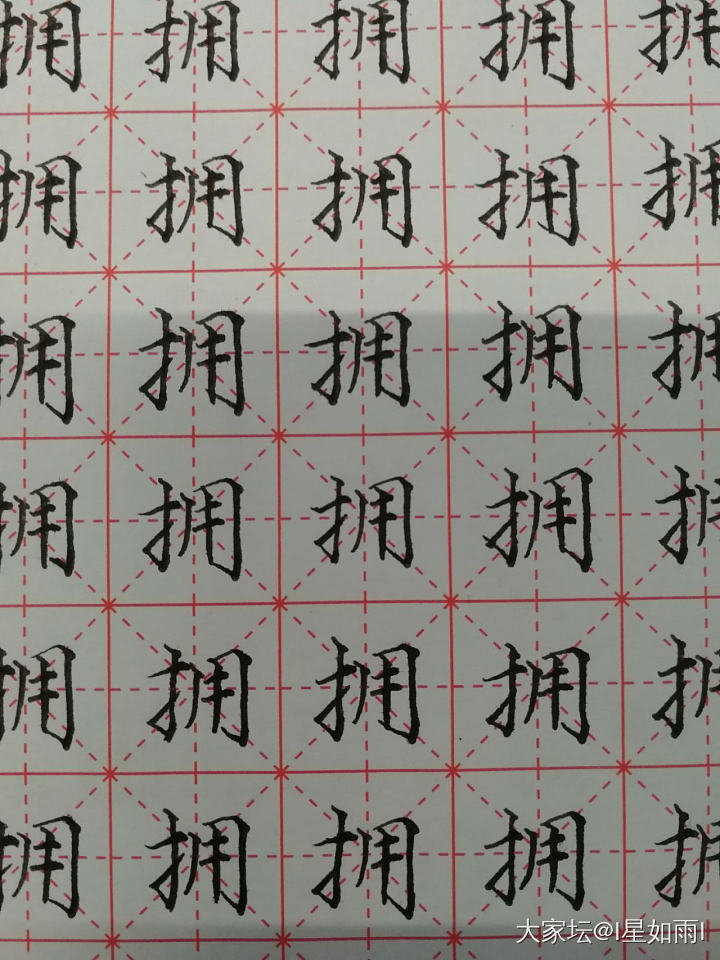 拥拥拥拥拥
拥拥拥拥拥
拥拥拥拥拥
拥拥拥拥拥
拥拥拥拥拥
拥拥拥拥拥
大家坛@l星如雨l